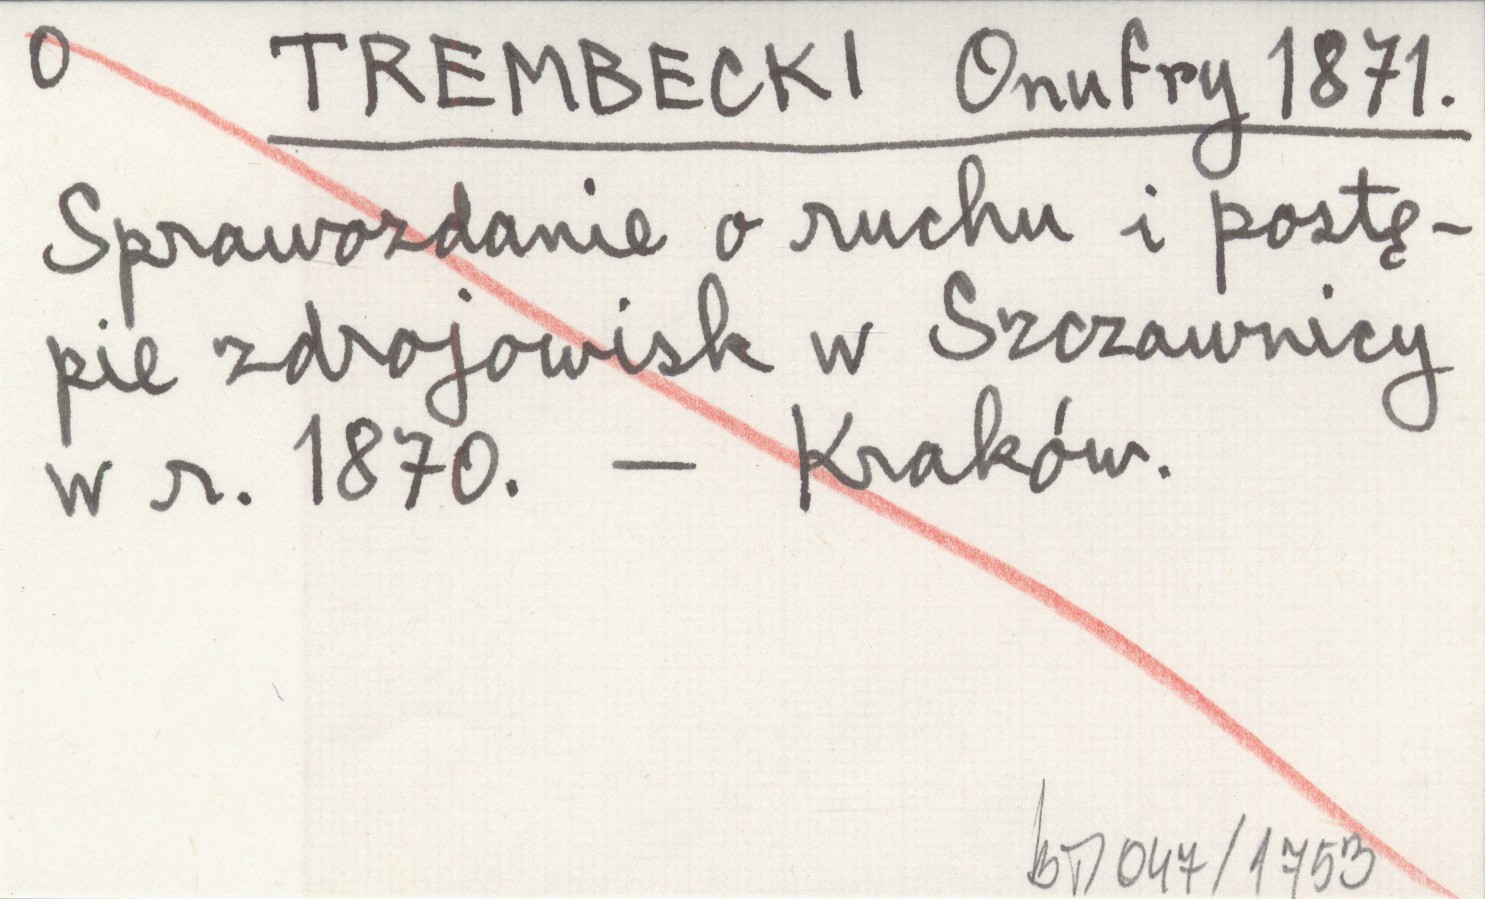 O TREMBECKI Onufry 1871.
Sprawozdanie o ruchu i postę-
pie zdrojowisk w Szczawnicy
w r. 1870. — Kraków.
047/1753